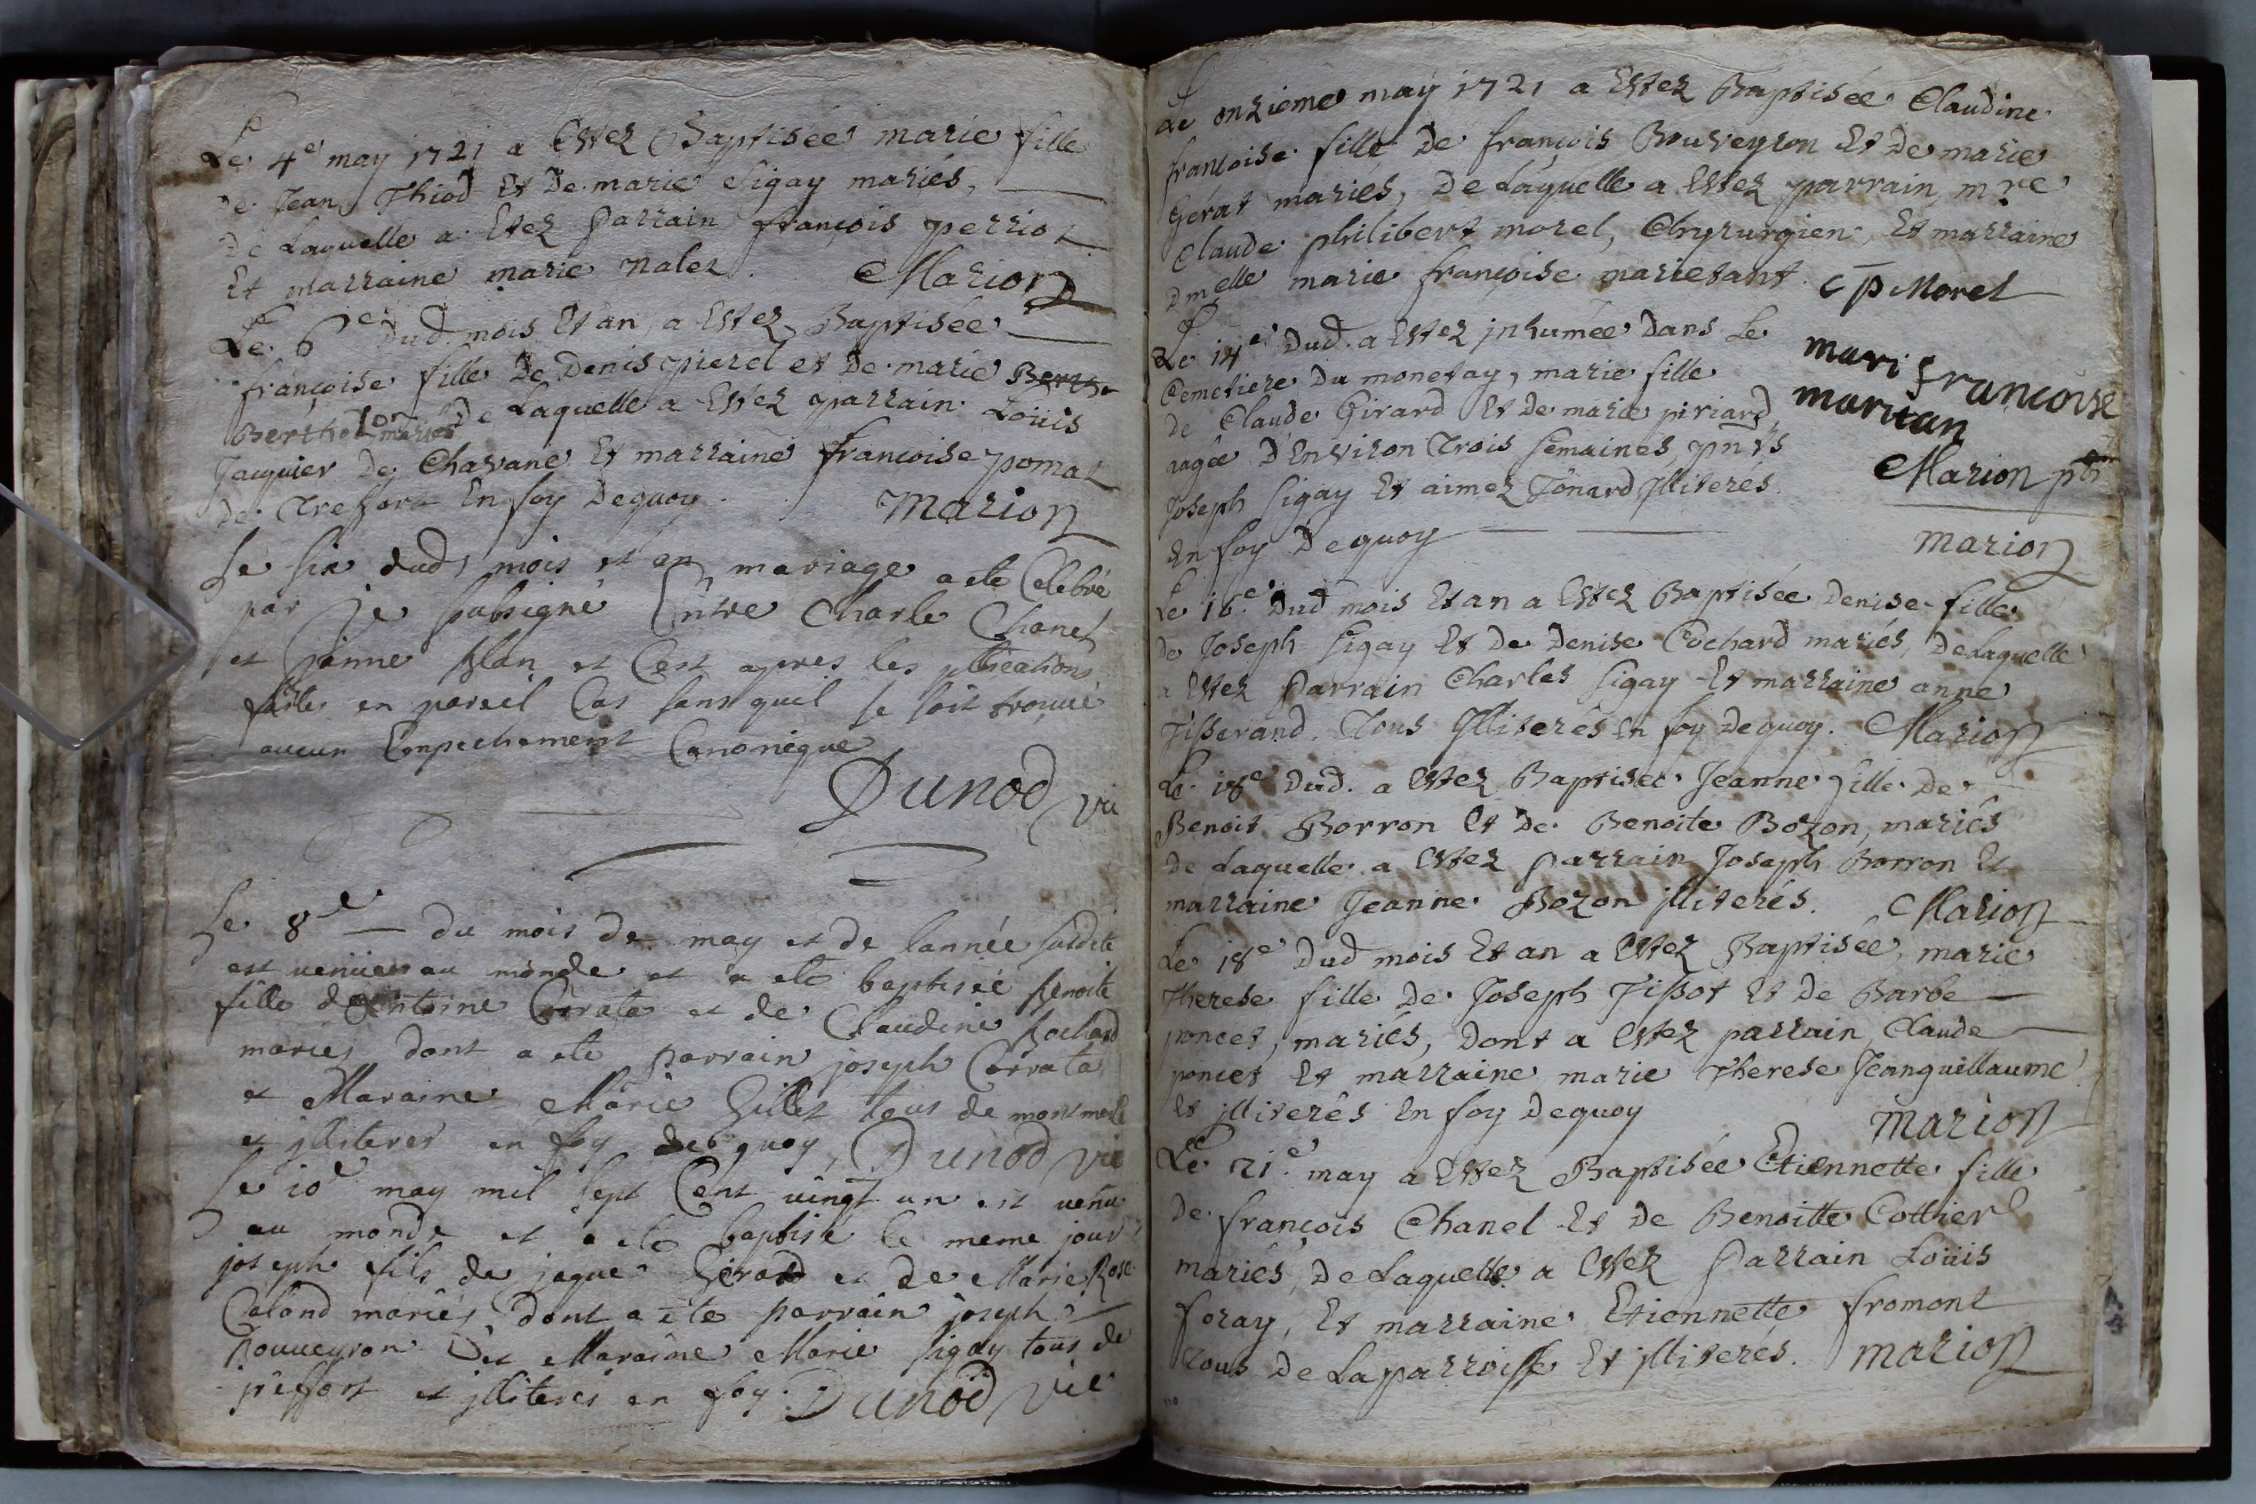 Le 4e may 1721 a Estez Baptisée marie fille
de Jean Thiod Et De marie Sigay mariés,
De Laquelle a Estez Parrain françois perrio
Et marraine marie nalez. Marion
Le 6e Dud. mois Et an, a Estez Baptisée
françoise fille De Denis pierel et De marie
Bertholon mariés De Laquelle a Estez parrain Loüis
Jacquier De Chavane Et marraine françoise pomat
De Trefort En foy Dequoy. Marion
Le six dud, mois et an mariage a ete Celebré
par je subsigné Entre Charle Chanel
et janne blan et Cest apres les pbleations
faittes en pareil Cas sans quil se soit trouvé
aucun Empechement Canonique
Dunod vic
Le 8e du mois de may et de lannée susditte
est venüe au monde et a ete baptisée benoite
fille dantoine Corrata et de Claudine bochard
mariés dont a ete parrain joseph Corrata
et Maraine Marie Gillet tous de montmerle
et jlliterés en foy dequoy, Dunod vic
Le 10e may mil sept Cent vingt un est venu
au monde et a ete baptisé le meme jour
joseph fils de jaque Girard et de Marie Rose
Caland mariés, dont a ete parrain joseph
bouveyron et Maraine Marie Sigay tous de
treffort et jlliterés en foy. Dunod vic
Le onzieme may 1721 a Estez Baptisée Claudine
françoise fille De françois Bouveyron Et De marie
Gerat mariés, De Laquelle a Estez parrain, mre
Claude philibert morel, Chyrurgien, Et marraine
Dmelle marie françoise marietant. C p Morel
Le 14e Dud. a Estez jnhumée Dans Le
mari françoise
Cemetiere Du monetay, marie fille
maritan
De Claude Girard Et De marie piriard
aagée D'Environ Trois semaines, pnts
Marion ptr
Joseph Sigay Et aimez Tonard jlliterés
En foy Dequoy
marion
Le 16e Dud mois Et an a Estez Baptisée Denise fille
De Joseph Sigay Et De Denise Cochard mariés, De Laquelle
a Estez Parrain Charles Sigay Et marraine anne
Tisserand. Tous jlliterés En foy Dequoy. Marion
Le 18e Dud. a Estez Baptisee Jeanne fille De
Benoit Borron Et De Benoite Bozon, mariés
De Laquelle a Estez Parrain Joseph Borron Et
marraine Jeanne Bozon jlliterés. Marion
Le 18e Dud mois Et an a Estez Baptisée, marie
Therese fille De Joseph Tissot Et De Barbe
poncet, mariés, Dont a Estez parrain, Claude
poncet Et marraine marie Therese Jeanguillaume
Et jlliterés En foy Dequoy
Marion
Le 21e may a Estez Baptisée Etiennette fille
De françois Chanel Et De Benoitte Cottier
mariés, De Laquelle a Estez Parrain Loüis
foray, Et marraine Etiennette fromont
Tous De La parroisse Et jlliterés. marion